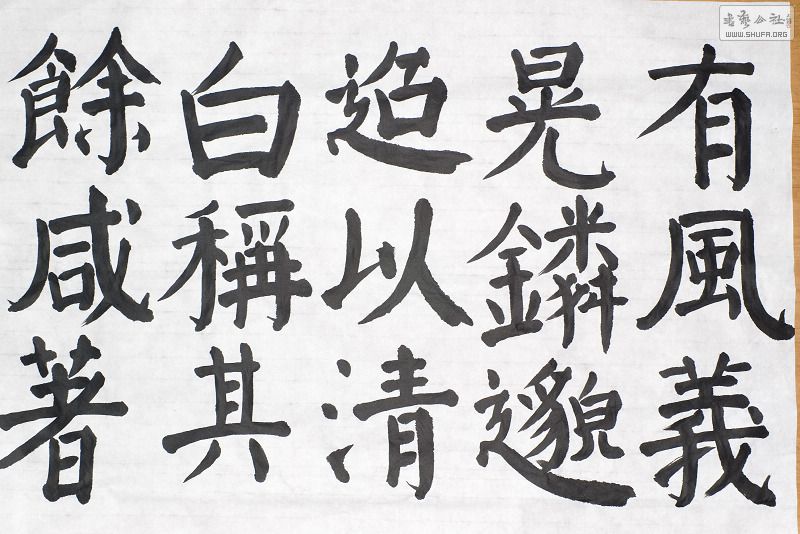 有風義
晃鏻邈
迢以清
白稱其
餘咸著
書藝公社
WWW.SHUFA.ORG